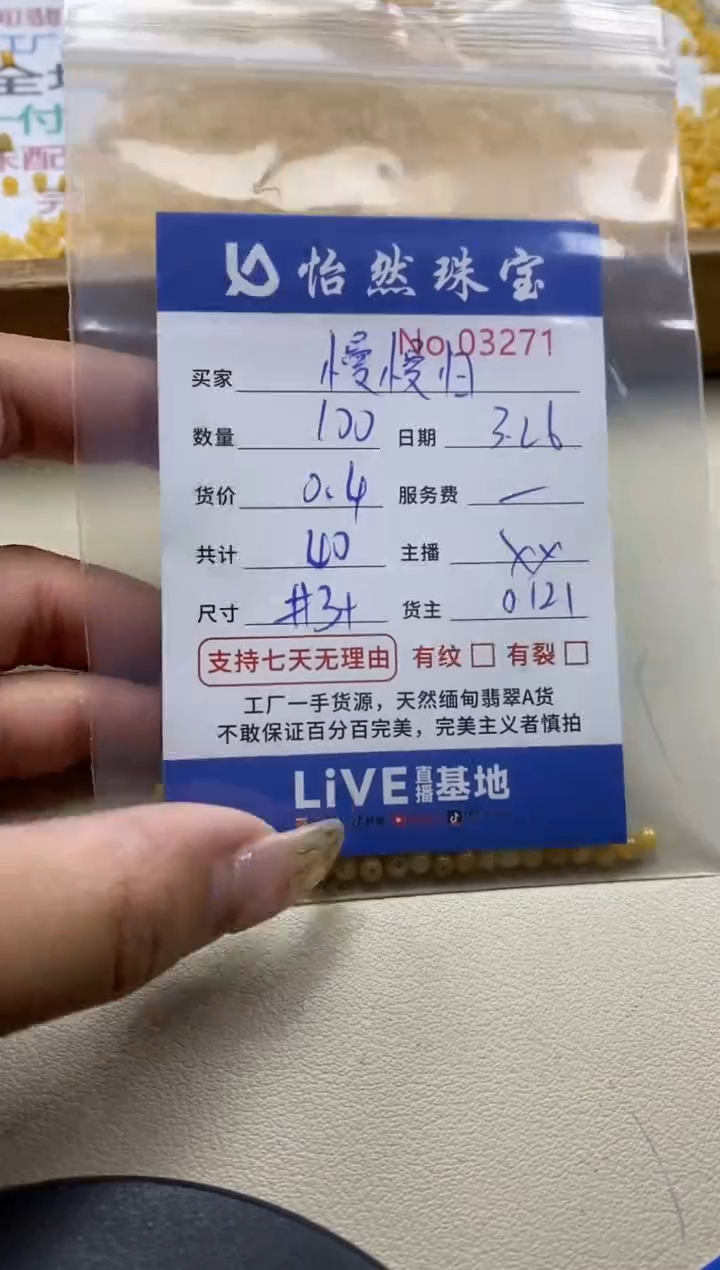 工厂
全
付
配
怡然珠宝
No.03271
买家 慢慢归
数量 100 日期 3.26
货价 0.4 服务费 一
共计 40 主播 XX
尺寸 #3+ 货主 0121
支持七天无理由 有纹□ 有裂□
工厂一手货源，天然缅甸翡翠A货
不敢保证百分百完美，完美主义者慎拍
LiVE直播基地